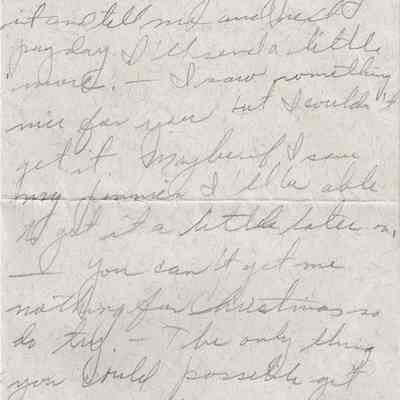 it and tell me and next
payday I'll send a little
more. — I saw something
nice for you but I couldn't
get it. Maybe if I save
my pennies I'll be able
to get it a little later on.
— You can't get me
nothing for Christmas so
do try. — The only thing
you could possible get